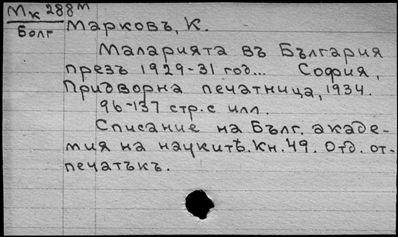 Мк 288м
Болг
Марковъ, К.
Маларията въ България
презъ 1929-31 год... София,
Придворна печатница, 1934.
96-137 стр. с илл.
Списание на Бълг. акаде-
мия на наукитѣ. Кн. 49. Отд. от-
печатъкъ.